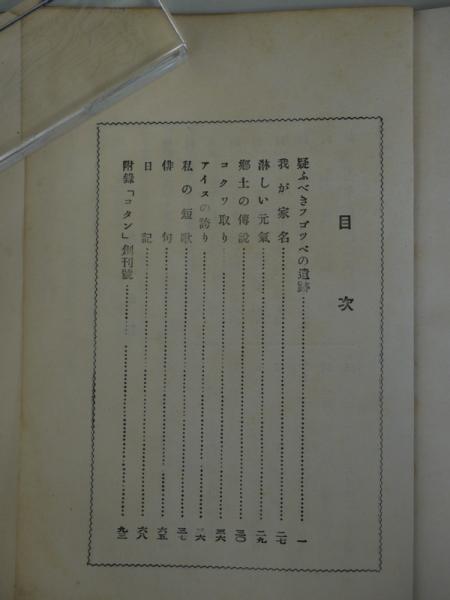 目次
疑ふべきフゴツペの遺跡……一
我が家名……二七
淋しい元氣……二九
鄕土の傳說……三〇
コクワ取り……三六
アイヌの誇り……六
私の短歌……三七
俳句……六五
日記……六八
附錄「コタン」創刊號……九三